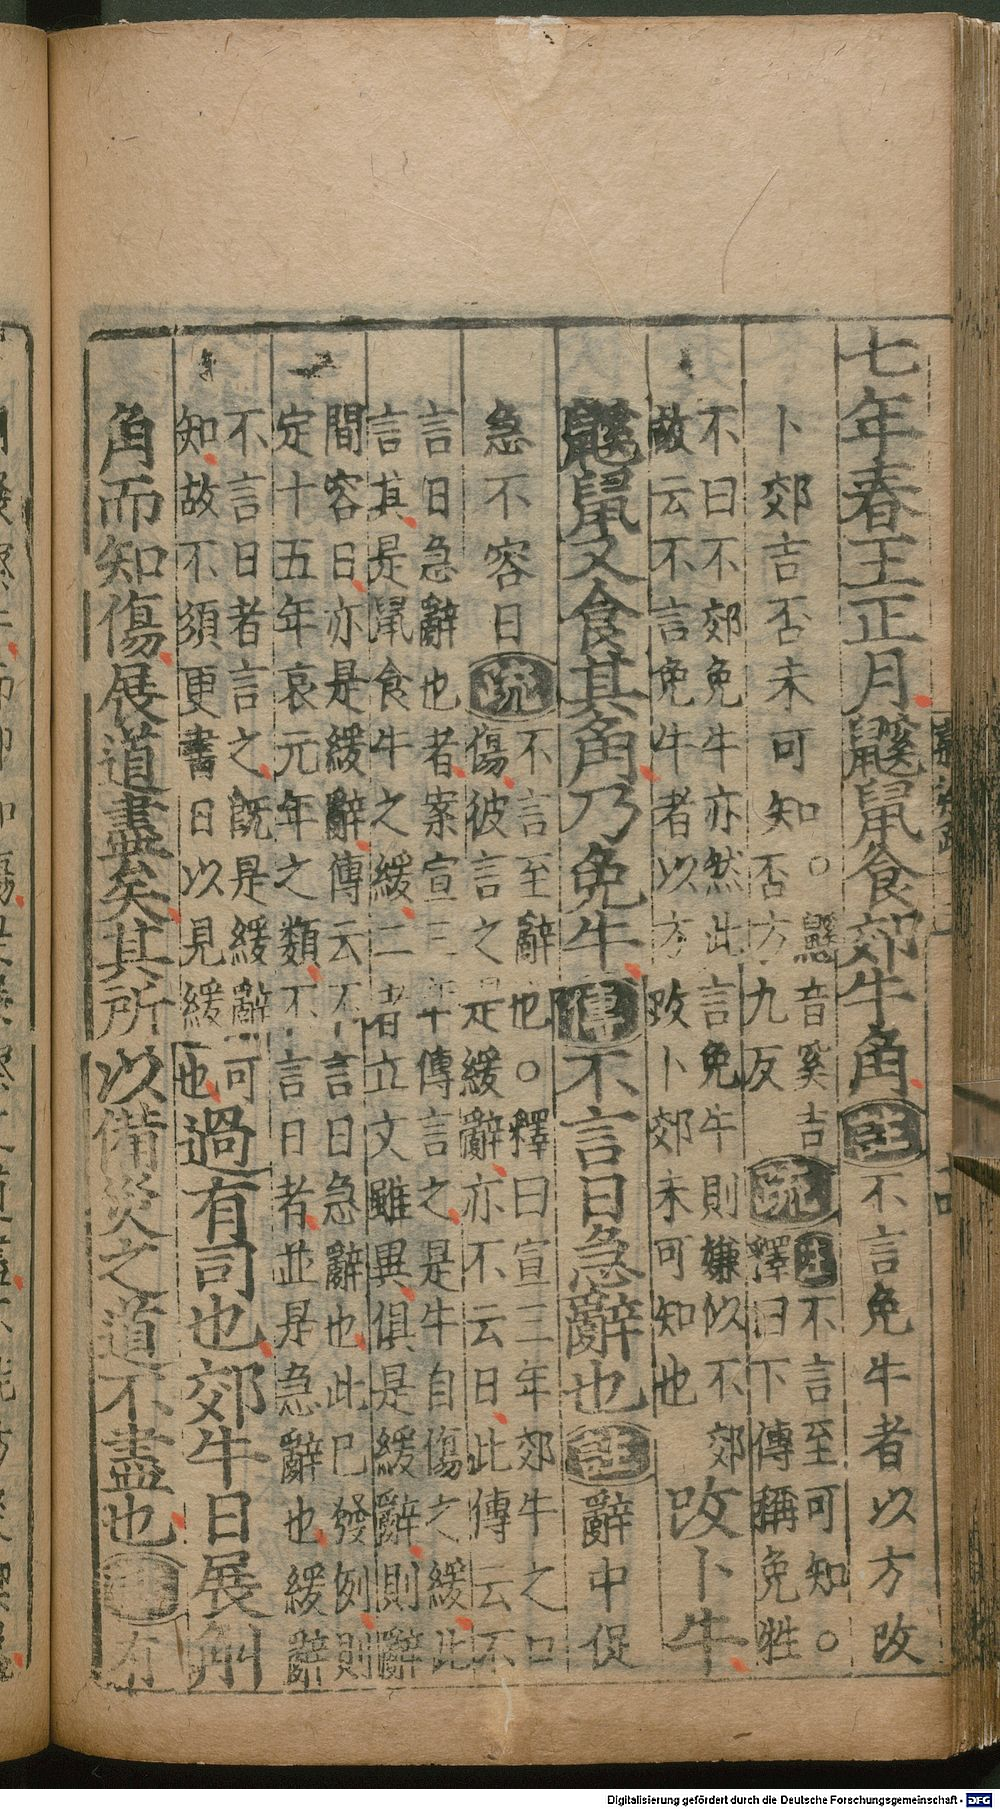 七年春王正月鼷鼠食郊牛角註不言免牛者以方改
卜郊吉否未可知。鼷音奚吉
知否方九反疏註不言至可知。
釋曰下傳稱免牲
不曰不郊免牛亦然此言免牛則嫌似不郊
故云不言免牛者以方改卜郊未可知也改卜牛
鼷鼠又食其角乃免牛傳不言日急辭也註辭中促
急不容日疏不言至辭也。釋曰宣三年郊牛之口
傷彼言之是緩辭亦不云日此傳云不
言日急辭也者案宣三年傳言之是牛自傷之緩此
言其是鼠食牛之緩二者立文雖異俱是緩辭則辭
間容日亦是緩辭傳云不言日急辭也此已發例則
定十五年哀元年之類不言日者並是急辭也緩辭
不言日者言之既是緩辭可
知故不須更書日以見緩也過有司也郊牛日展斛
角而知傷展道盡矣其所以備災之道不盡也註有
Digitalisierung gefördert durch die Deutsche Forschungsgemeinschaft - DFG